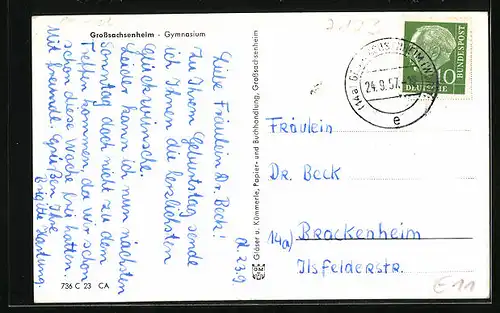 Großsachsenheim - Gymnasium
d. 23.9
Liebe Fräulein Dr. Beck!
Zu Ihrem Geburtstag sende
ich Ihnen die herzlichsten
Glückwünsche.
Leider kann ich nun nächsten
Sonntag doch nicht zu dem
Treffen kommen, da wir schon
schon diese Woche frei hatten.
Mit freundl. Grüßen Ihre
Brigitte Hartung.
736 C 23 CA
Gläser u. Kümmerle, Papier- und Buchhandlung, Großsachsenheim
24.9.57
(14a)
e
DEUTSCHE
BUNDESPOST
10
Fräulein
Dr. Beck
14a) Brackenheim
Ilsfelderstr.
E11